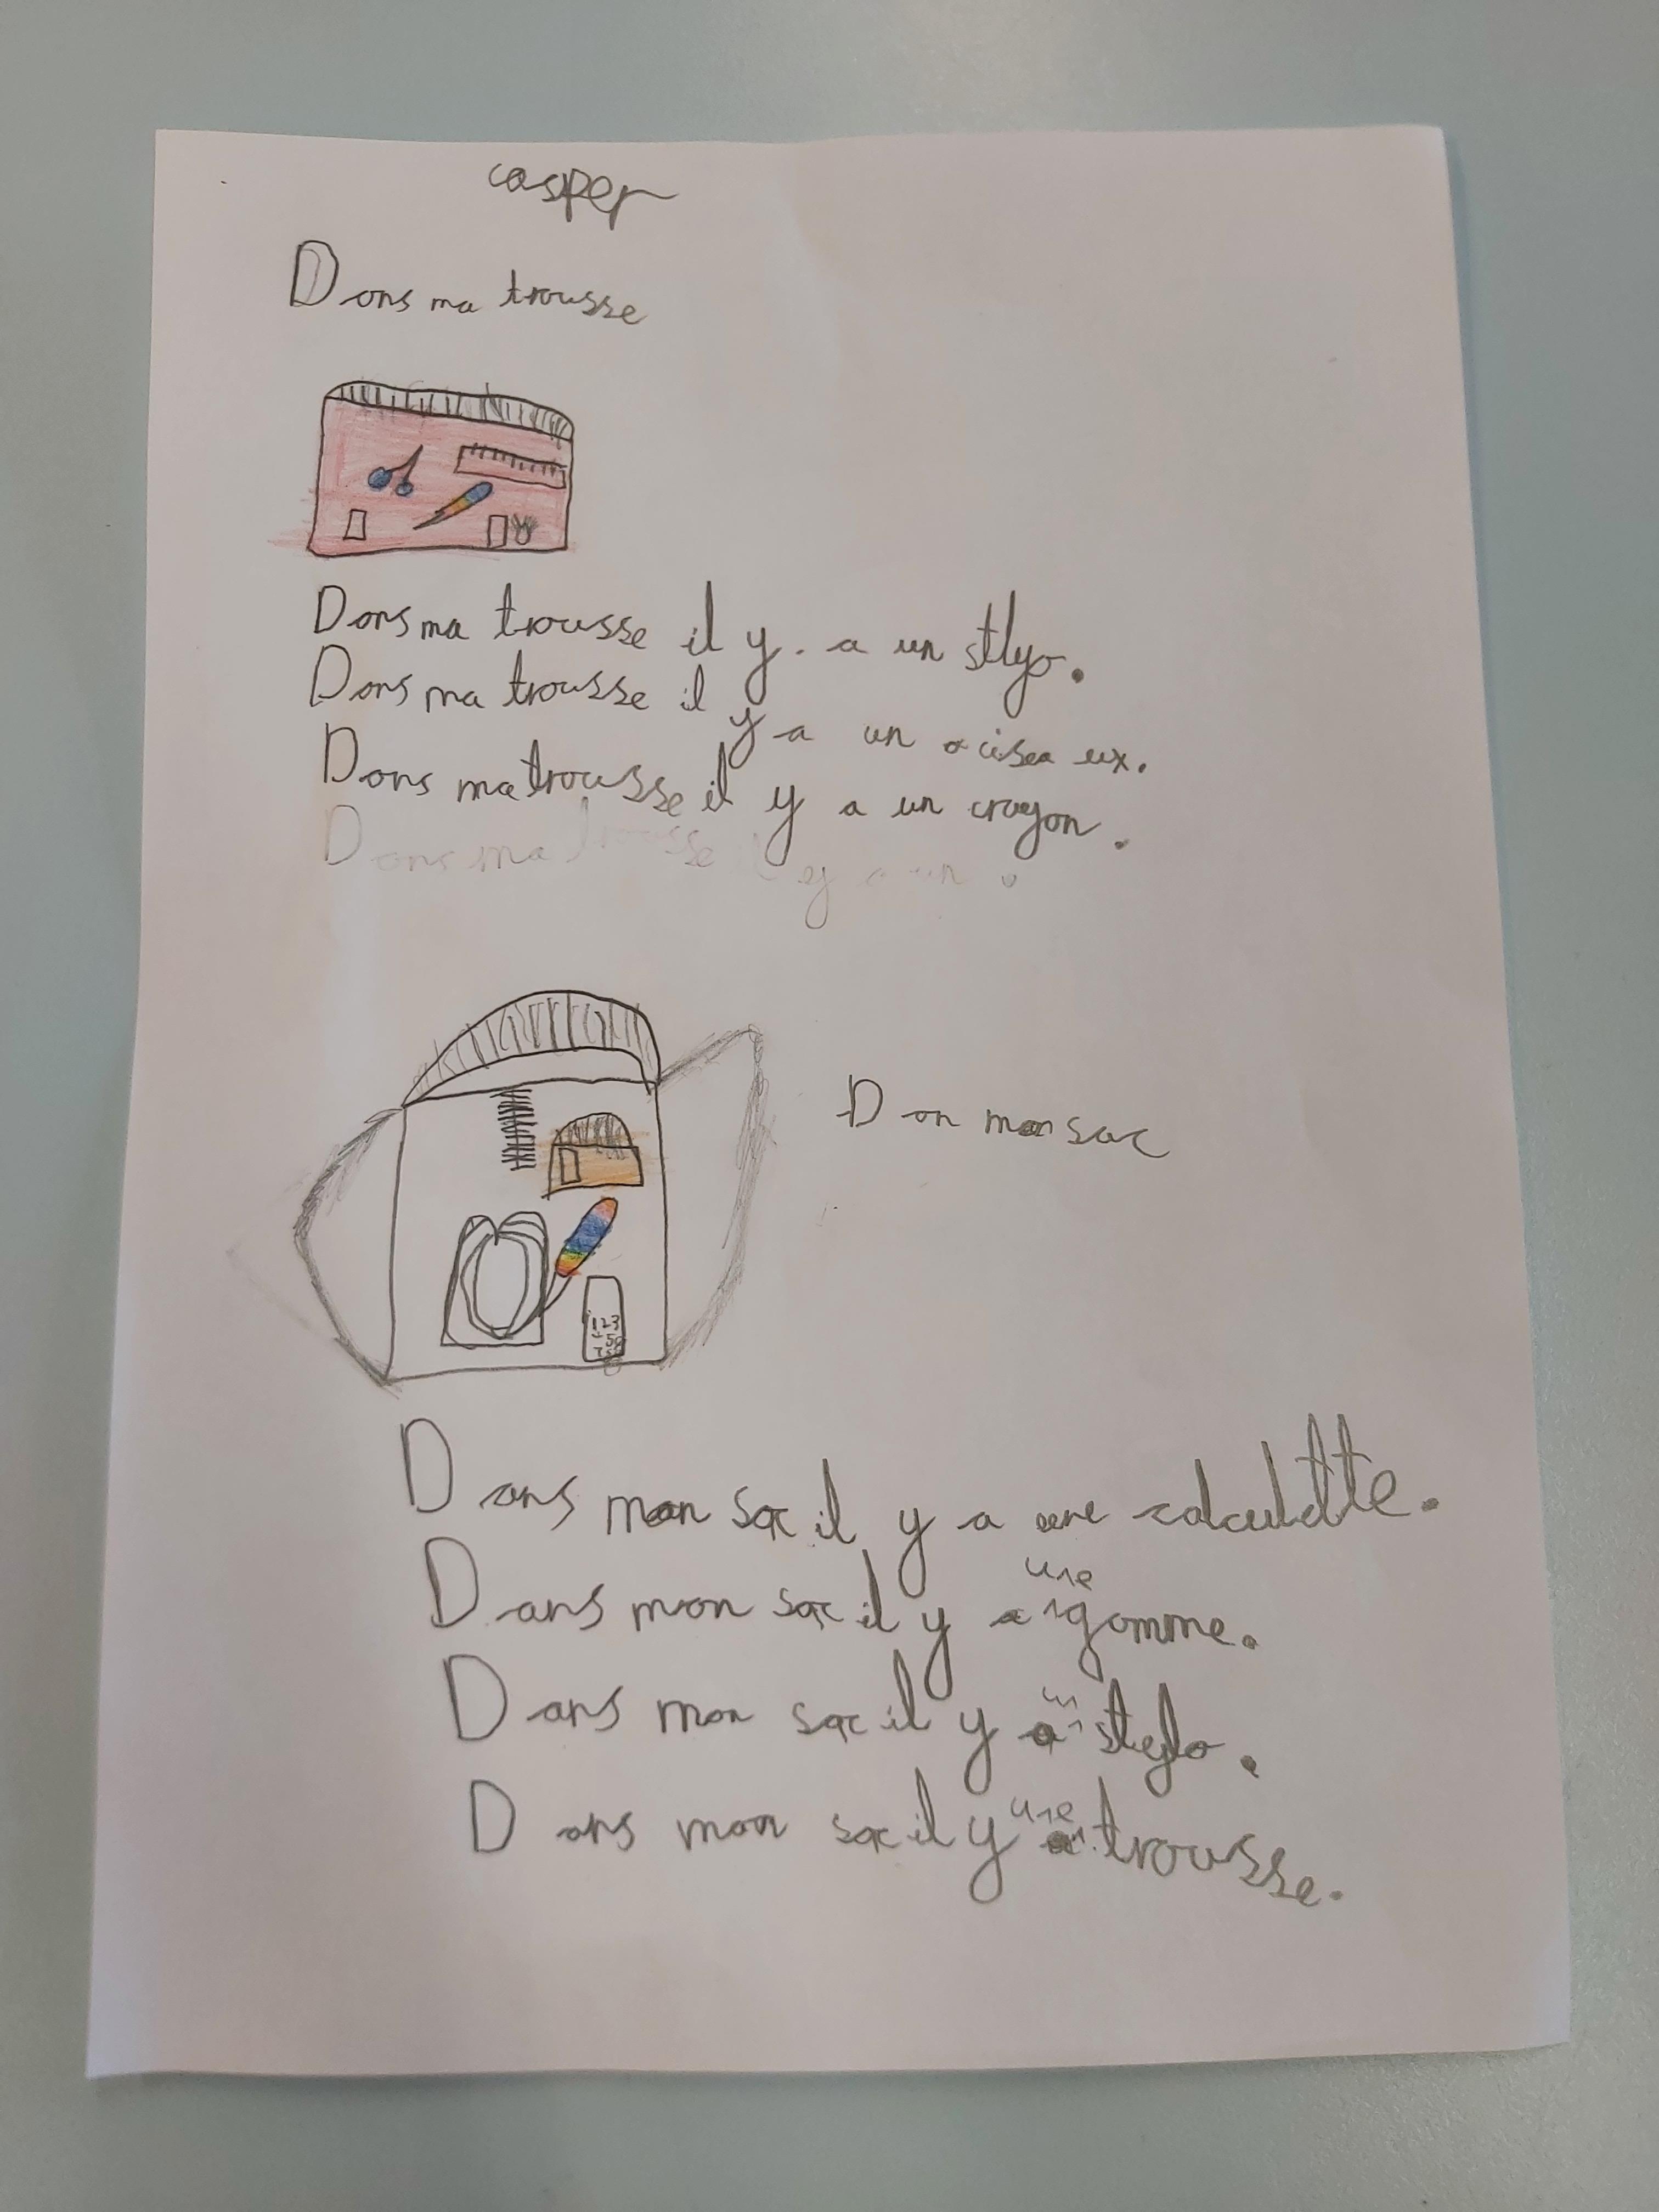 casper
Dans ma trousse
Dans ma trousse il y a un stlyo.
Dans ma trousse il y a un ciseaux.
Dans ma trousse il y a un crayon.
Dans ma trousse il y a un .
123
Dan mon sac
Dans mon sac il y a une calculette.
Dans mon sac il y a une gomme.
Dans mon sac il y a un stylo.
Dans mon sac il y a une trousse.